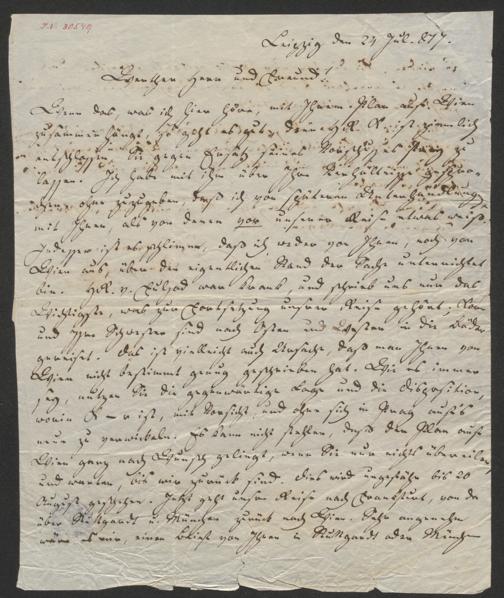 I.N. 30549
Leipzig den 24 Jul. 817.
Werthen Herr und Freund!
Wenn das, was ich hier höre, mit Ihrem Plan auf Wien
zusammen hängt, so geht es gut, denn Hr. ist ziemlich
entschlossen, Sie gegen Ersatz seines Vorschusses zu
lassen. Ich habe mit ihm über Ihre Verhältnisse gesprochen
ohne zuzugeben, daß ich von spätern
mit Ihnen, als von denen vor unserer Reise etwas weiß.
Indessen ist es schlimm, daß ich weder von Ihnen, noch von
Wien aus, über den eigentlichen Stand der Sache unterrichtet
bin. Hr. v. war krank und schrieb uns nur das
Wichtigste, was zur Fortsetzung unserer Reise gehört.
und Ihre Schwester sind nach Osten und Westen in die Bäder
gereiset. Das ist vielleicht auch Ursache, daß man Ihnen von
Wien nicht bestimmt genug geschrieben hat. Wie es immer
sey, nutzen Sie die gegenwärtige Lage und die Disposition,
worin ist, mit Vorsicht, und ohne sich in Prag aufs
neue zu verwickeln. Es kann nicht fehlen, daß der Plan auf
Wien ganz nach Wunsch gelingt, wenn Sie nur nichts übereilen
und warten, bis wir zurück sind. Dies wird ungefähr bis 20
August geschehen. Jetzt geht unsere Reise nach Frankfurt, von da
über Stuttgardt u. München zurück nach Wien. Sehr angenehm
wäre es mir, einen Brief von Ihnen in Stuttgardt oder München